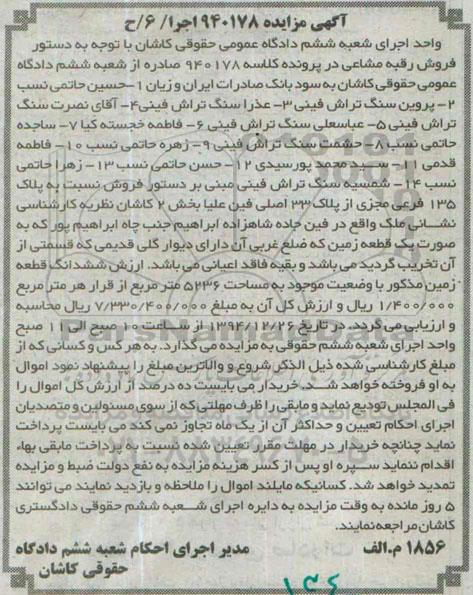 آگهی مزایده ۹۴۰۱۷۸ اجرا/ ۶/ح
واحد اجرای شعبه ششم دادگاه عمومی حقوقی کاشان با توجه به دستور
فروش رقبه مشاعی در پرونده کلاسه ۹۴۰۱۷۸ صادره از شعبه ششم دادگاه
عمومی حقوقی کاشان به سود بانک صادرات ایران و زیان ۱-حسین حاتمی نسب
۲- پروین سنگ تراش فینی ۳- عذرا سنگ تراش فینی۴- آقای نصرت سنگ
تراش فینی ۵- عباسعلی سنگ تراش فینی ۶- فاطمه خجسته کیا ۷- ساجده
حاتمی نسب ۸- حشمت سنگ تراش فینی ۹- زهره حاتمی نسب ۱۰- فاطمه
قدمی ۱۱- سید محمد پورسیدی ۱۲- حسن حاتمی نسب ۱۳- زهرا حاتمی
نسب ۱۴- شمسیه سنگ تراش فینی مبنی بر دستور فروش نسبت به پلاک
۱۳۵ فرعی مجزی از پلاک ۳۳ اصلی فین علیا بخش ۲ کاشان نظریه کارشناسی
نشانی ملک واقع در فین جاده شاهزاده ابراهیم جنب چاه ابراهیم پور که به
صورت یک قطعه زمین که ضلع غربی آن دارای دیوار گلی قدیمی که قسمتی از
آن تخریب گردید می باشد و بقیه فاقد اعیانی می باشد. ارزش ششدانگ قطعه
زمین مذکور با وضعیت موجود به مساحت ۵۲۳۶ متر مربع از قرار هر متر مربع
۱/۴۰۰/۰۰۰ ریال و ارزش کل آن به مبلغ ۷/۳۳۰/۴۰۰/۰۰۰ ریال محاسبه
و ارزیابی می گردد. در تاریخ ۱۳۹۴/۱۲/۲۶ از ساعت ۱۰ صبح الی ۱۱ صبح
واحد اجرای شعبه ششم حقوقی به مزایده می گذارد. به هر کس و کسانی که از
مبلغ کارشناسی شده ذیل الذکر شروع و والاترین مبلغ را پیشنهاد نمود اموال
به او فروخته خواهد شد. خریدار می بایست ده درصد از ارزش کل اموال را
فی المجلس تودیع نماید و مابقی را ظرف مهلتی که از سوی مسئولین و متصدیان
اجرای احکام تعیین و حداکثر آن از یک ماه تجاوز نمی کند می بایست پرداخت
نماید چنانچه خریدار در مهلت مقرر تعیین شده نسبت به پرداخت مابقی بهاء
اقدام ننماید سپره او پس از کسر هزینه مزایده به نفع دولت ضبط و مزایده
تمدید خواهد شد. کسانیکه مایلند اموال را ملاحظه و بازدید نمایند می توانند
۵ روز مانده به وقت مزایده به دایره اجرای شعبه ششم حقوقی دادگستری
کاشان مراجعه نمایند.
۱۸۵۶ م.الف مدیر اجرای احکام شعبه ششم دادگاه
حقوقی کاشان